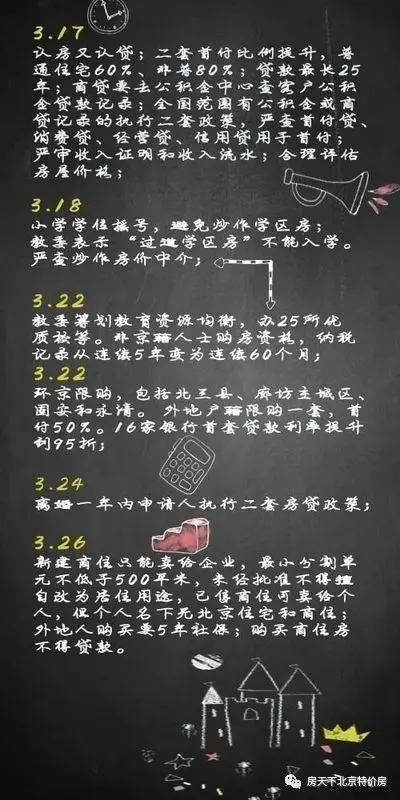 3.17
认房又认贷；二套首付比例提升，普
通住宅60%、非普80%；贷款最长25
年；商贷要去公积金中心查客户公积
金贷款记录；全国范围有公积金或商
贷记录的执行二套政策，严查首付贷、
消费贷、经营贷、信用贷用于首付；
严审收入证明和收入流水；合理评估
房屋价格；
3.18
小学学位摇号，避免炒作学区房；
教委表示“过道学区房”不能入学。
严查炒作房价中介；
3.22
教委筹划教育资源均衡，办25所优
质校等。非京籍人士购房资格，纳税
记录从连续5年变为连续60个月；
3.22
环京限购，包括北三县、廊坊主城区、
固安和永清。外地户籍限购一套，首
付50%。16家银行首套贷款利率提升
到95折；
3.24
离婚一年内申请人执行二套房贷政策；
3.26
新建商住只能卖给企业，最小分割单
元不低于500平米，未经批准不得擅
自改为居住用途，已售商住可卖给个
人，但个人名下无北京住宅和商住；
外地人购买要5年社保；购买商住房
不得贷款。
房天下北京特价房